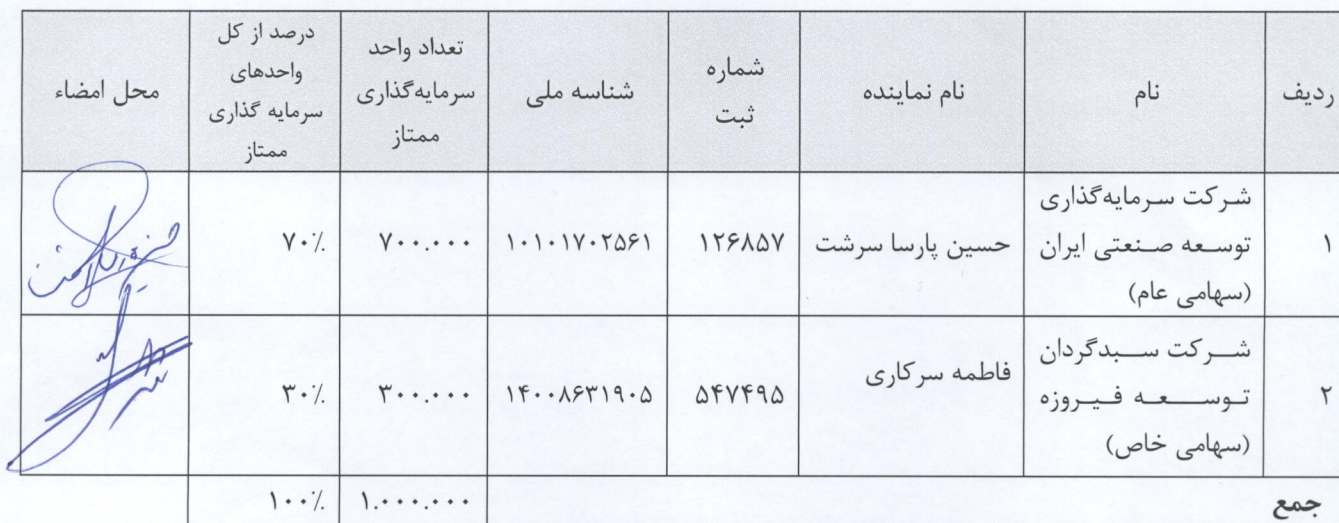 ردیف
نام
نام نماینده
شماره
ثبت
شناسه ملی
تعداد واحد
سرمایه‌گذاری
ممتاز
درصد از کل
واحدهای
سرمایه گذاری
ممتاز
محل امضاء
۱
شرکت سرمایه‌گذاری
توسعه صنعتی ایران
(سهامی عام)
حسین پارسا سرشت
۱۲۶۸۵۷
۱۰۱۰۱۷۰۲۵۶۱
۷۰۰.۰۰۰
۷۰٪
۲
شرکت سبدگردان
توسعه فیروزه
(سهامی خاص)
فاطمه سرکاری
۵۴۷۴۹۵
۱۴۰۰۸۶۳۱۹۰۵
۳۰۰.۰۰۰
۳۰٪
جمع
۱.۰۰۰.۰۰۰
۱۰۰٪